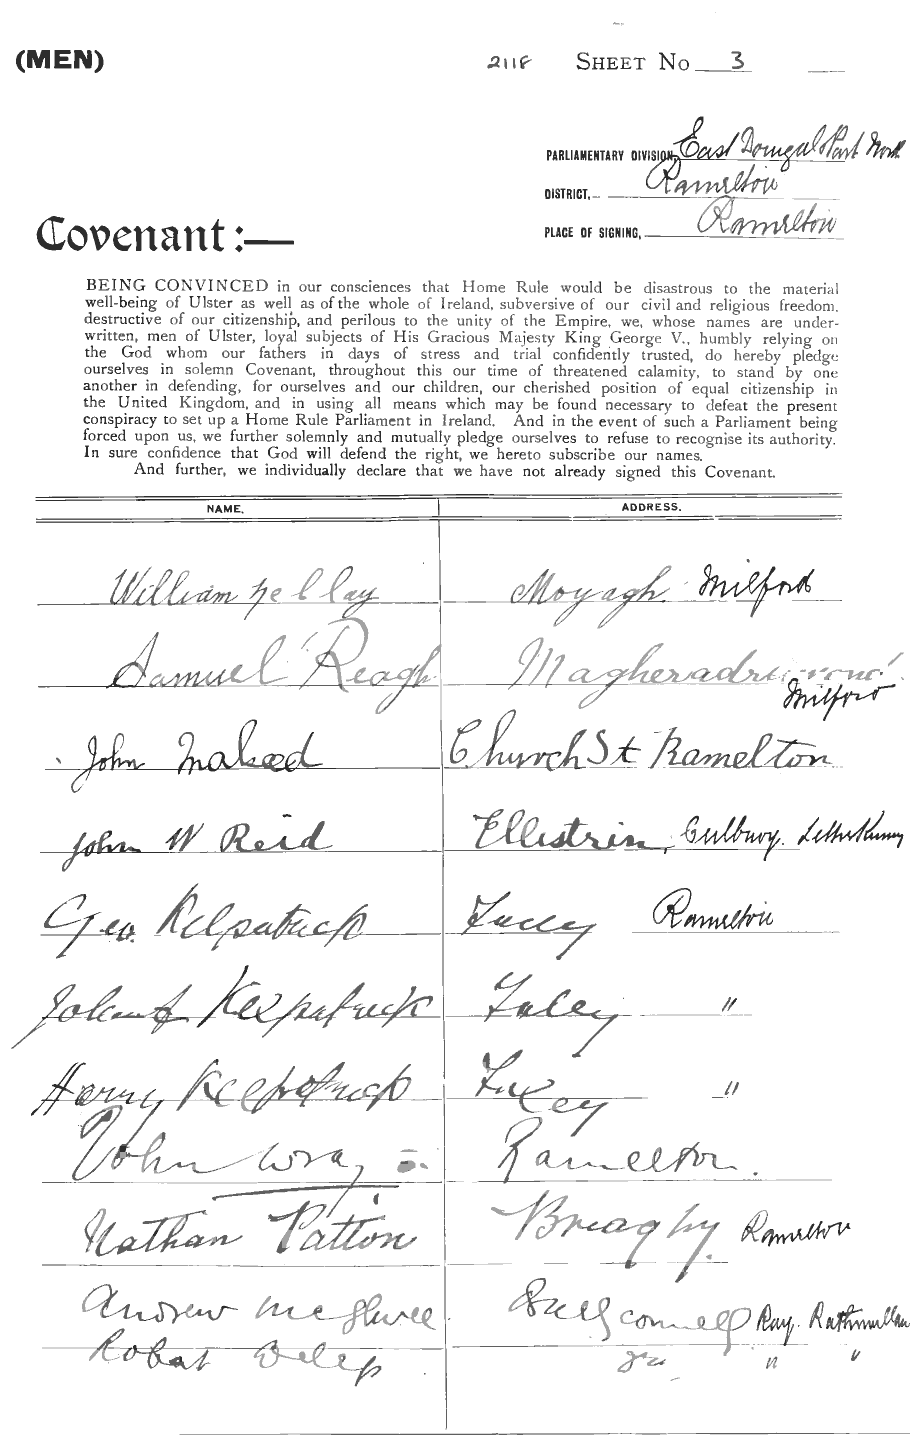 (MEN)
2118 SHEET No 3
PARLIAMENTARY DIVISION, East Donegal Part North
DISTRICT,- Ramelton
PLACE OF SIGNING,- Ramelton
Covenant:—
BEING CONVINCED in our consciences that Home Rule would be disastrous to the material
well-being of Ulster as well as of the whole of Ireland, subversive of our civil and religious freedom,
destructive of our citizenship, and perilous to the unity of the Empire, we, whose names are under-
written, men of Ulster, loyal subjects of His Gracious Majesty King George V., humbly relying on
the God whom our fathers in days of stress and trial confidently trusted, do hereby pledge
ourselves in solemn Covenant, throughout this our time of threatened calamity, to stand by one
another in defending, for ourselves and our children, our cherished position of equal citizenship in
the United Kingdom, and in using all means which may be found necessary to defeat the present
conspiracy to set up a Home Rule Parliament in Ireland. And in the event of such a Parliament being
forced upon us, we further solemnly and mutually pledge ourselves to refuse to recognise its authority.
In sure confidence that God will defend the right, we hereto subscribe our names.
And further, we individually declare that we have not already signed this Covenant.
NAME. ADDRESS.
William Moyagh Milford
Samuel Reagh
Milford
John Church St Ramelton
John W Reid Ellistrin,
Geo. Kilpatrick Ramelton
Kilpatrick "
Harry Kilpatrick "
John Wray Ramelton.
Nathan Patton Breaghy. Ramelton
Andrew Ray. Rathmullan
Robert Delap do " "